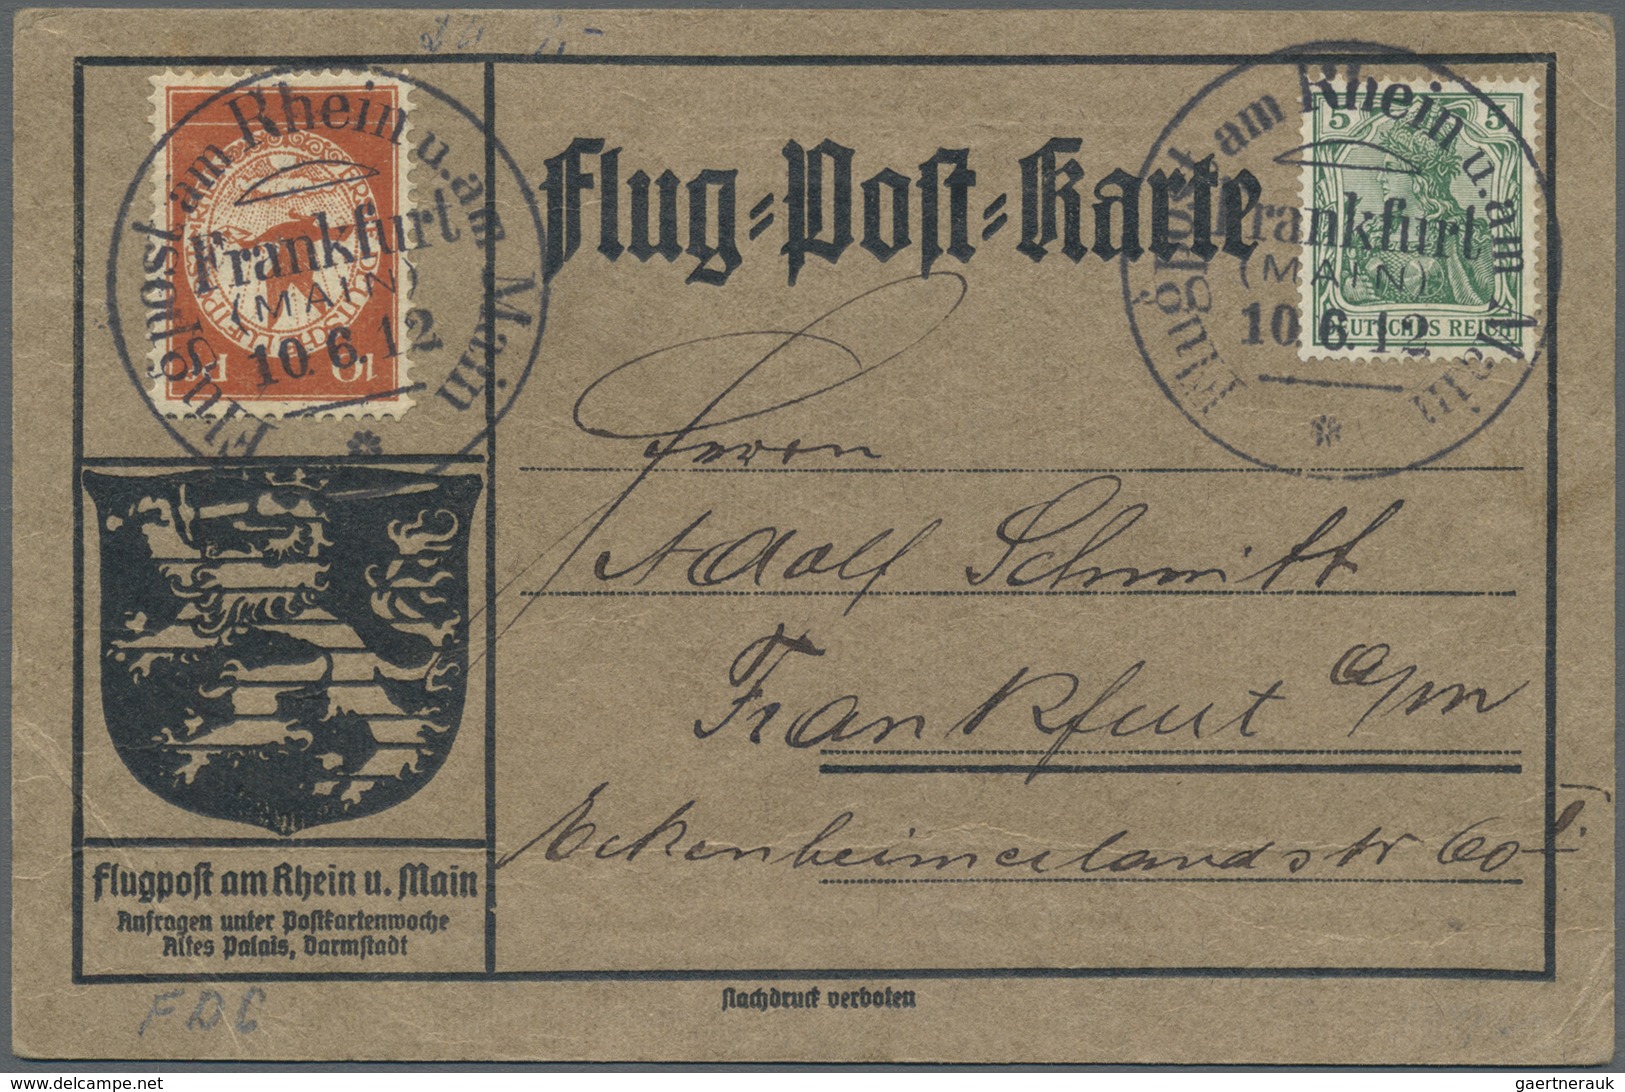 Flugpost am Rhein u. am Main
Frankfurt
(MAIN)
10.6.12
Flug=Post=Karte
Flugpost am Rhein u. am Main
Frankfurt
(MAIN)
10.6.12
5 5
DEUTSCHES REICH
Herrn
Adolf Schmitt
Frankfurt a/m
Eckenheimerlandstr 60 I.
Flugpost am Rhein u. Main
Anfragen unter Postkartenwoche
Altes Palais, Darmstadt
Nachdruck verboten
FDC
gaertnerauk